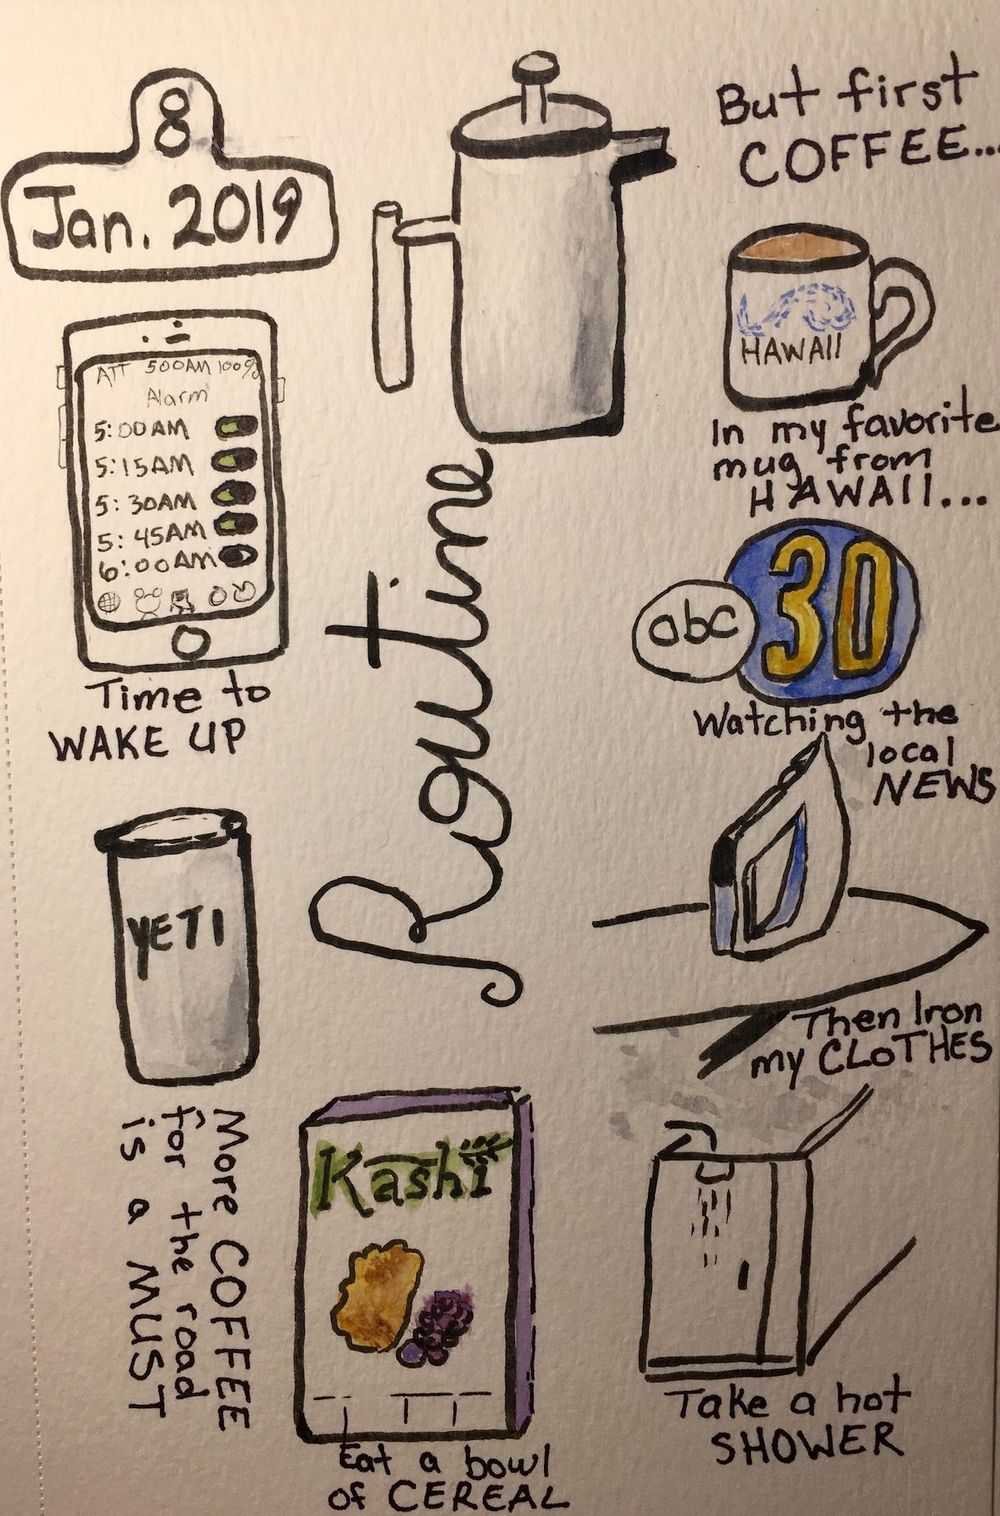 8
Jan. 2019
ATT 500AM 100%
Alarm
5:00AM
5:15AM
5:30AM
5:45AM
6:00AM
Time to
WAKE UP
But first
COFFEE...
HAWAII
In my favorite
mug from
HAWAII...
abc
30
Watching the
local
NEWS
Then Iron
my CLOTHES
Take a hot
SHOWER
Kashi
Eat a bowl
of CEREAL
YETI
More COFFEE
for the road
is a MUST
Routine